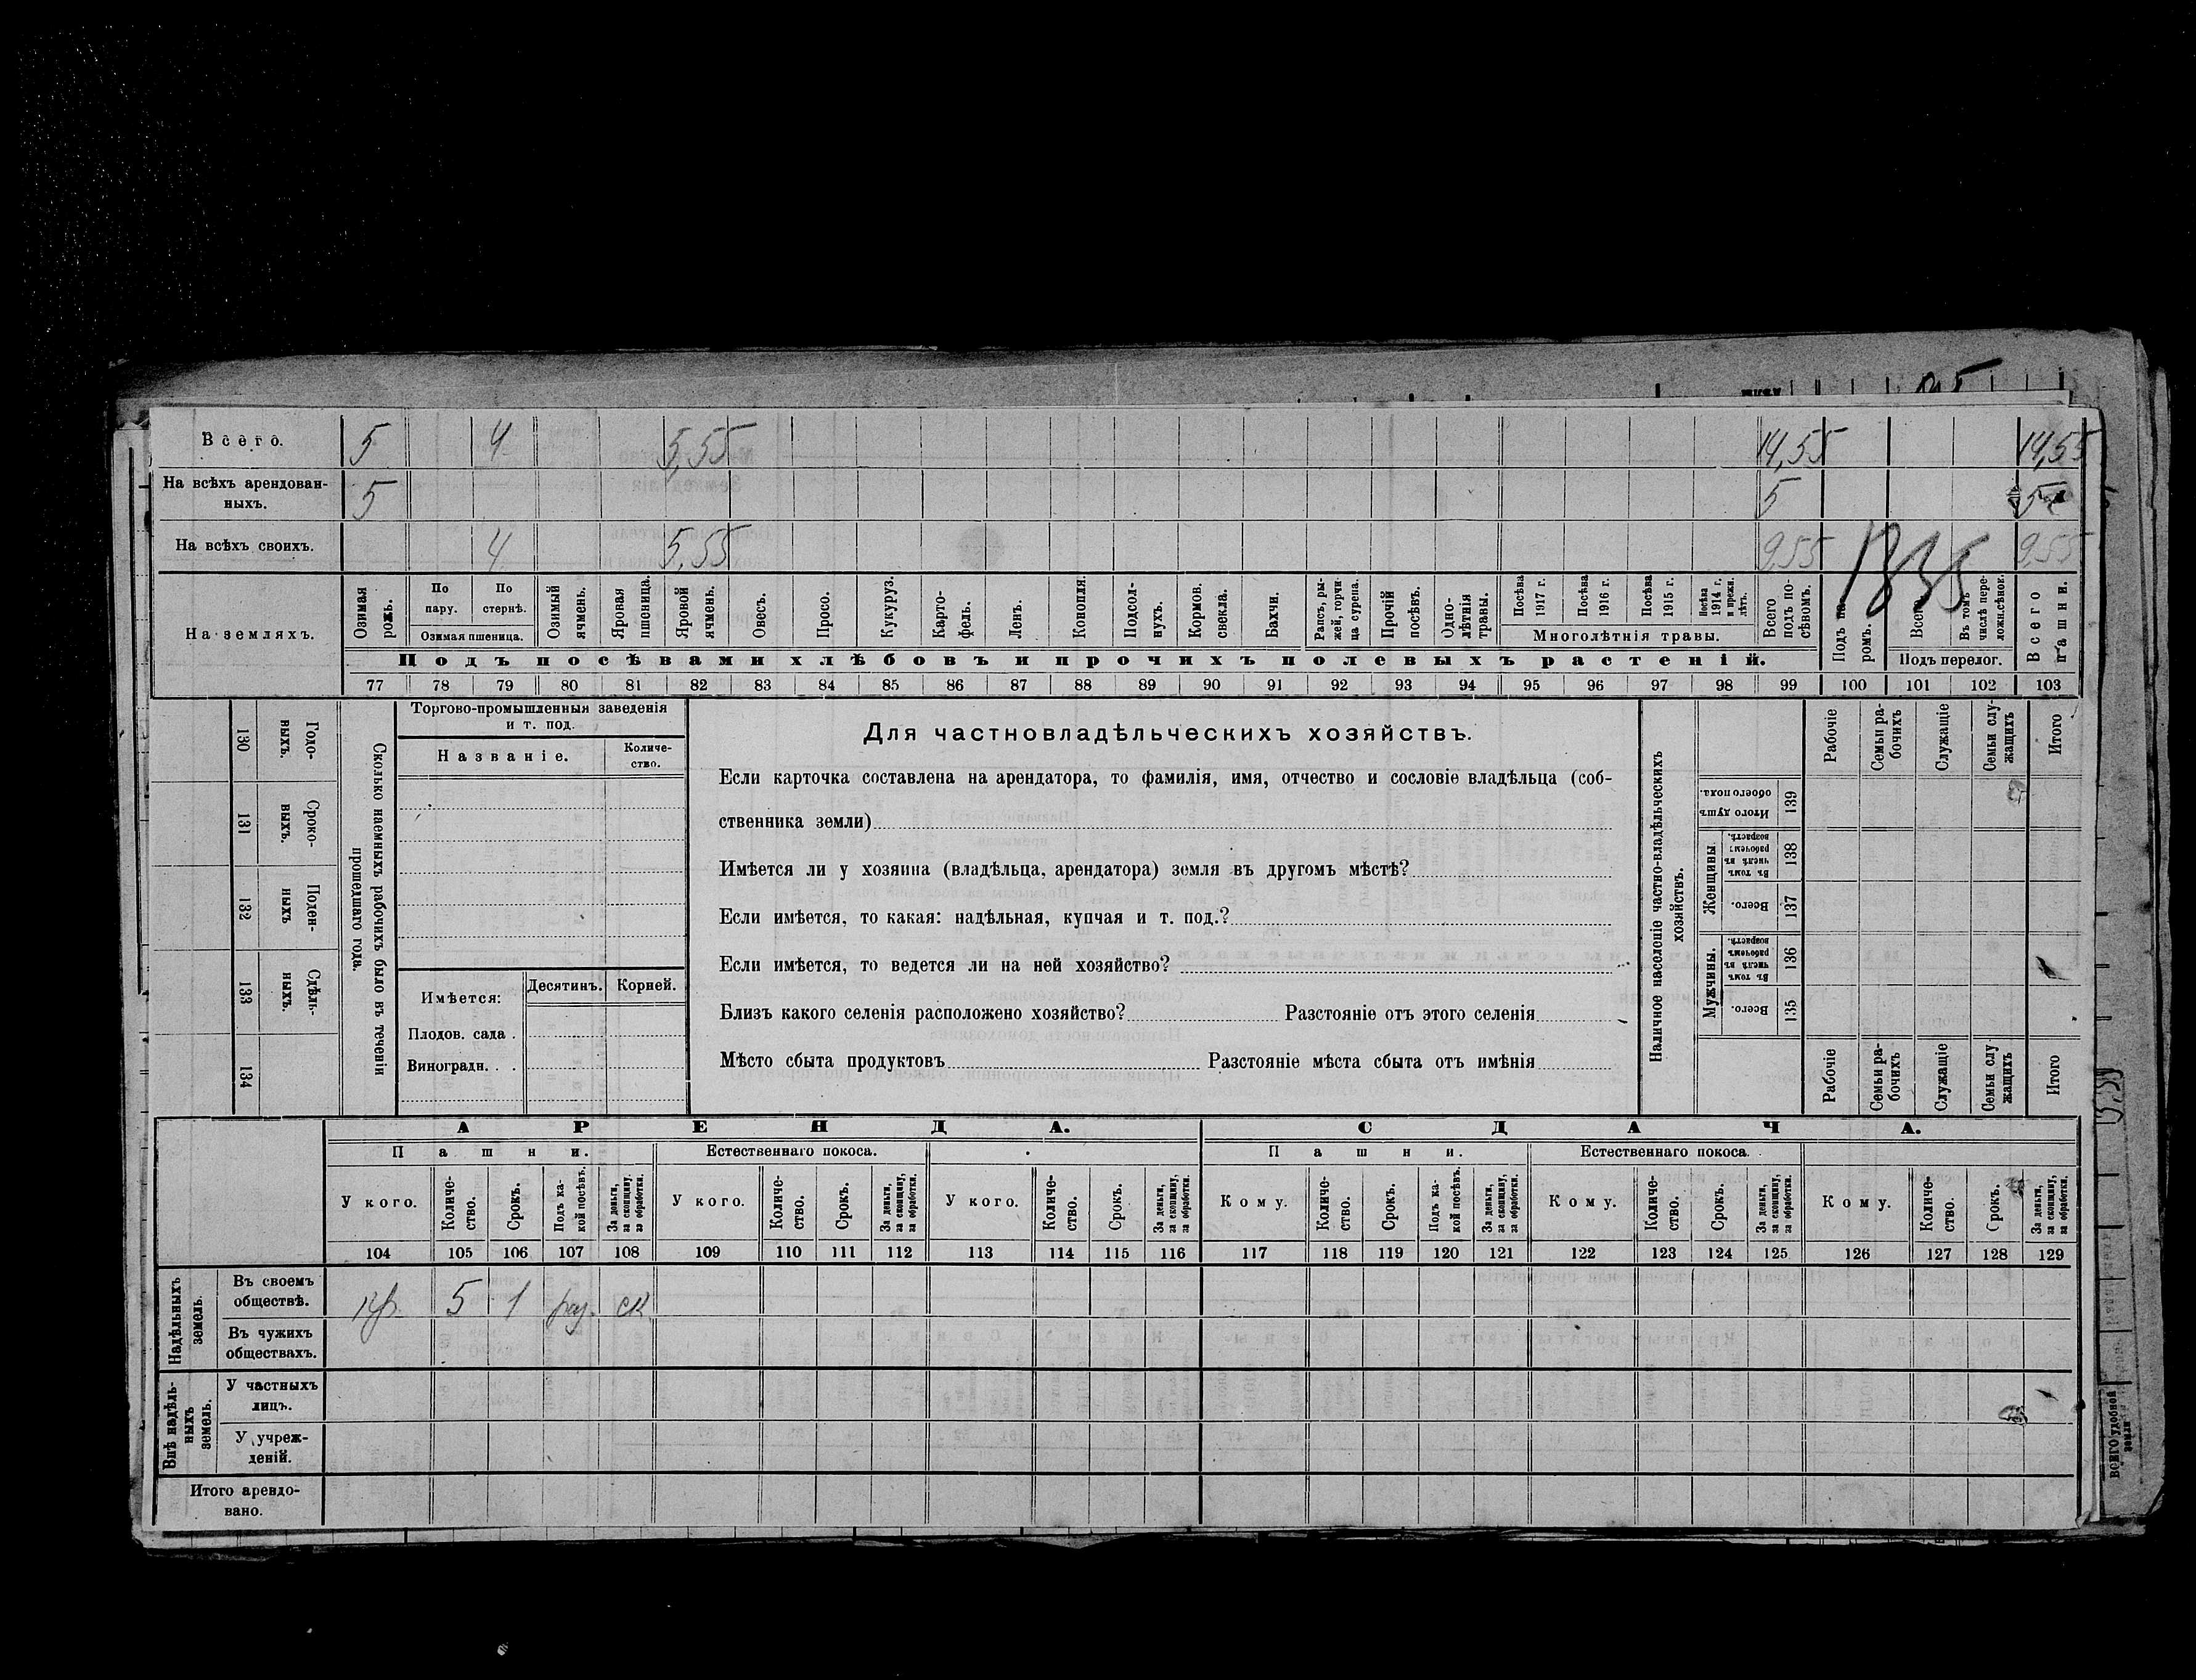 Всего. 5 4 5,55 14,55 14,55
На всѣхъ арендован-
ныхъ. 5 5 5
На всѣхъ своихъ. 4 5,55 9,55 9,55
1835
На земляхъ.
Озимая рожь.
По пару.
По стернѣ.
Озимая пшеница.
Озимый ячмень.
Яровая пшоница.
Яровой ячмень.
Овесъ.
Просо.
Кукуруз.
Карто-
фель.
Ленъ.
Конопля.
Подсол-
нухъ.
Кормов. свекла.
Бахчи.
Рапсъ, ры-
жей, горчи-
ца сурепа.
Прочій посѣвъ.
Одно-
лѣтнія травы.
Посѣва 1917 г.
Посѣва 1916 г.
Посѣва 1915 г.
Посѣва 1914 г. и прежн. лѣтъ.
Многолѣтнія травы.
Всего подъ по-
сѣвомъ.
Подъ па-
ромъ.
Всего.
Въ томъ числѣ пере-
ложн.сѣнок.
Подъ перелог.
Всего пашни.
Подъ посѣвами хлѣбовъ и прочихъ полевыхъ растеній.
77 78 79 80 81 82 83 84 85 86 87 88 89 90 91 92 93 94 95 96 97 98 99 100 101 102 103
Сколько наемныхъ рабочихъ было въ теченіи
прошедшаго года.
Годо-
ныхъ.
130
Сроко-
ныхъ.
131
Поден-
ныхъ
132
Сдѣль-
ныхъ.
133
134
Торгово-промышленныя заведенія
и т. под.
Названіе.
Количе-
ство.
Имѣется:
Десятинъ.
Корней.
Плодов. сада .
Виноградн. . .
Для частновладѣльческихъ хозяйствъ.
Если карточка составлена на арендатора, то фамилія, имя, отчество и сословіе владѣльца (соб-
ственника земли)
Имѣется ли у хозяина (владѣльца, арендатора) земля въ другомъ мѣстѣ?
Если имѣется, то какая: надѣльная, купчая и т. под.?
Если имѣется, то ведется ли на ней хозяйство?
Близъ какого селенія расположено хозяйство? Разстояніе отъ этого селенія
Мѣсто сбыта продуктовъ Разстояніе мѣста сбыта отъ имѣнія
Наличное населеніе частно-владѣльческихъ
хозяйствъ.
Рабочіе
Семьи ра-
бочихъ
Служащіе
Семьи слу-
жащихъ
Итого
Итого душъ обоего пола.
139
Женщины.
Въ томъ числѣ въ рабочемъ возрастѣ.
138
Всего.
137
Мужчины.
Въ томъ числѣ въ рабочемъ возрастѣ.
136
Всего.
135
Рабочіе
Семьи ра-
бочихъ
Служащіе
Семьи слу
жащихъ
Итого
АРЕНДА.
СДАЧА.
Пашни. Естественнаго покоса. Пашни. Естественнаго покоса.
У кого.
Количе-
ство.
Срокъ.
Подъ ка-
кой посѣвъ.
За деньги, за скопщину, за обработки.
У кого.
Количе-
ство.
Срокъ.
За деньги, за скопщину, за обработки.
У кого.
Количе-
ство.
Срокъ.
За деньги, за скопщину, за обработки.
Кому.
Количе-
ство.
Срокъ.
Подъ ка-
кой посѣвъ.
За деньги, за скопщину, за обработки.
Кому.
Количе-
ство.
Срокъ.
За деньги, за скопщину, за обработки.
Кому.
Количе-
ство.
Срокъ.
За деньги, за скопщину, за обработки.
104 105 106 107 108 109 110 111 112 113 114 115 116 117 118 119 120 121 122 123 124 125 126 127 128 129
Надѣльныхъ
земель.
Въ своемъ
обществѣ. кр. 5 1 раз. ск.
Въ чужихъ
обществахъ.
Внѣ надѣль-
ныхъ
земель.
У частныхъ
лицъ.
У учреж-
деній.
Итого арендо-
вано.